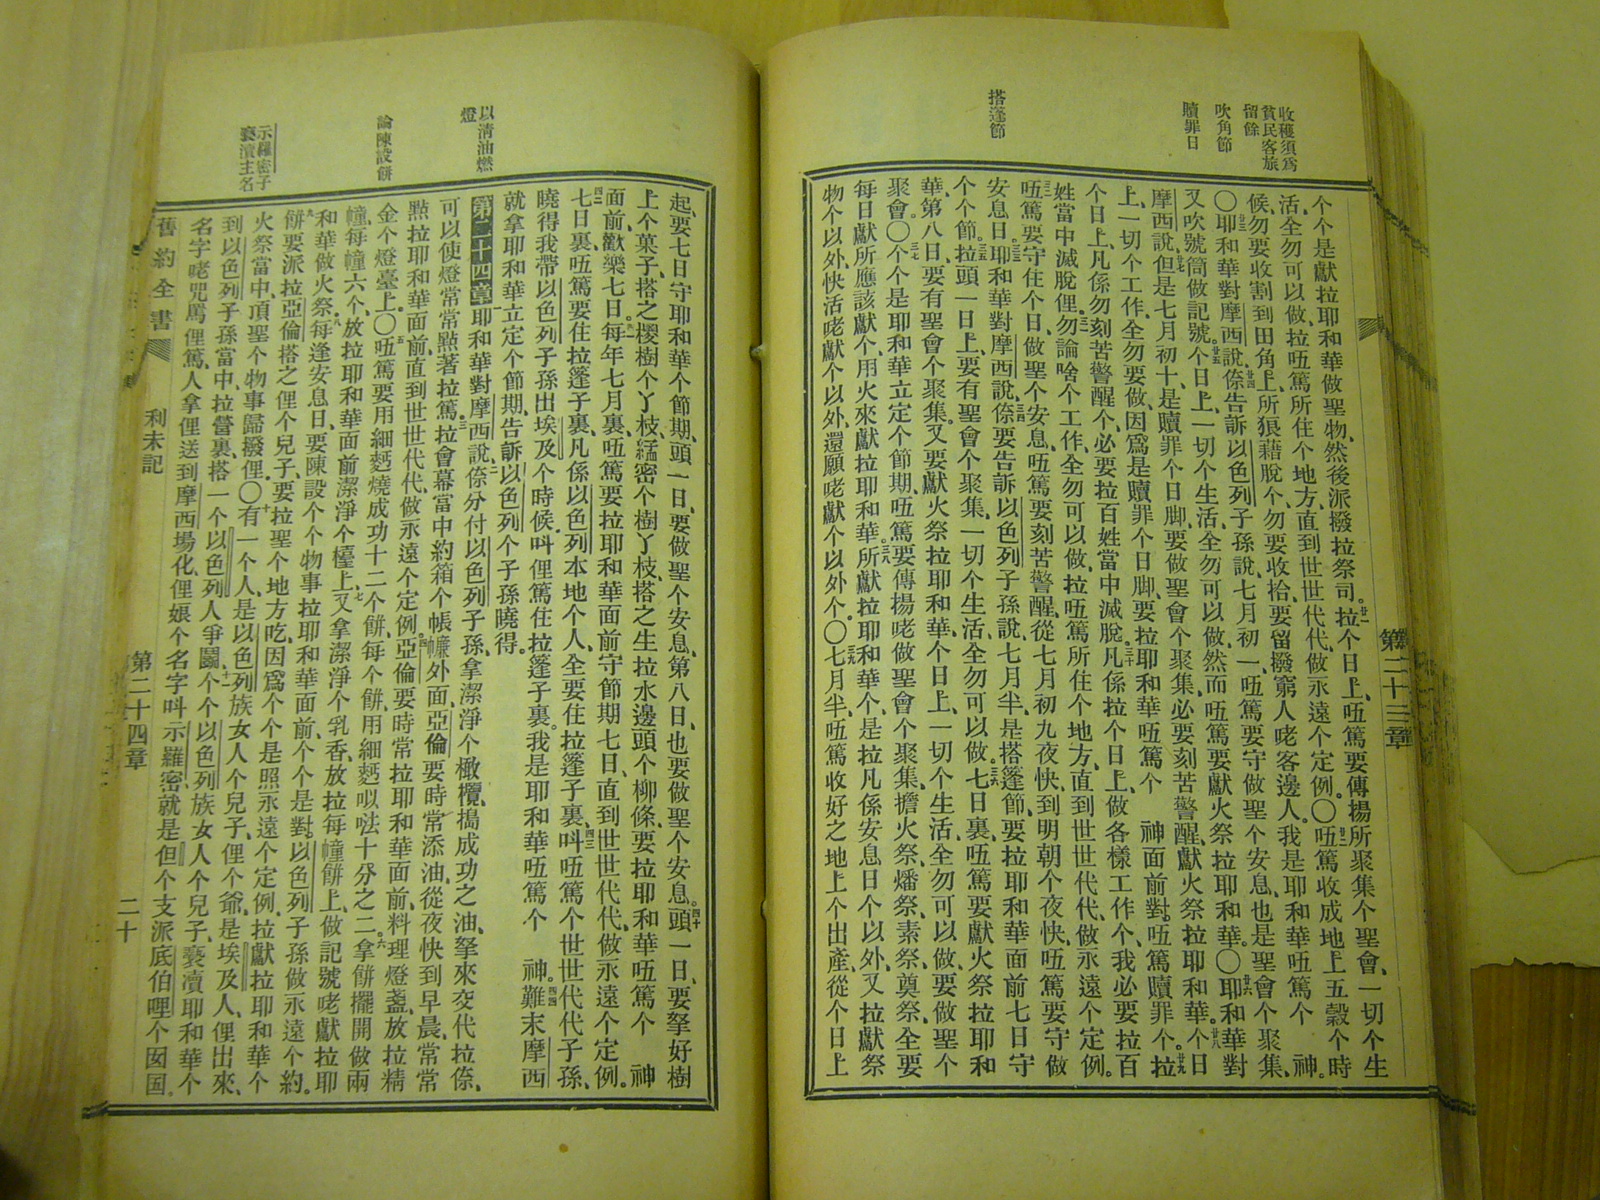 收穫須爲
貧民客旅
留餘
吹角節
贖罪日
搭蓬節
第二十三章
个个是獻拉耶和華做聖物、然後派撥拉祭司。拉个日上、㕶篤要傳揚所聚集个聖會、一切个生
活、全勿可以做、拉㕶篤所住个地方、直到世世代代、做永遠个定例。〇㕶篤收成地上五穀个時
候、勿要收割到田角上、所狼藉脫个、勿要收拾、要留撥窮人咾客邊人、我是耶和華㕶篤个 神。
〇耶和華對摩西說、傣告訴以色列子孫說、七月初一、㕶篤要守做聖个安息、也是聖會个聚集、
又吹號筒做記號。个日上、一切个生活、全勿可以做、然而㕶篤要獻火祭拉耶和華。〇耶和華對
摩西說、但是七月初十、是贖罪个日脚、要做聖會个聚集、必要刻苦警醒、獻火祭拉耶和華。个日
上、一切个工作、全勿要做、因爲是贖罪个日脚、要拉耶和華㕶篤个 神面前、對㕶篤贖罪个。拉
个日上、凡係勿刻苦警醒个、必要拉百姓當中滅脫、凡係拉个日上、做各樣工作个、我必要拉百
姓當中滅脫俚。勿論啥个工作、全勿可以做、拉㕶篤所住个地方、直到世世代代、做永遠个定例。
㕶篤要守住个日、做聖个安息、㕶篤要刻苦警醒、從七月初九夜快、到明朝个夜快、㕶篤要守做
安息日。耶和華對摩西說、傣要告訴以色列子孫說、七月半、是搭篷節、要拉耶和華面前七日守
个个節。拉頭一日上、要有聖會个聚集、一切个生活、全勿可以做。七日裏、㕶篤要獻火祭拉耶和
華、第八日、要有聖會个聚集、又要獻火祭拉耶和華、个日上、一切个生活、全勿可以做、要做聖个
聚會。〇个个是耶和華立定个節期、㕶篤要傳揚咾做聖會个聚集、擔火祭、燔祭、素祭、奠祭、全要
每日獻所應該獻个、用火來獻拉耶和華。所獻拉耶和華个、是拉凡係安息日个以外、又拉獻祭
物个以外、快活咾獻个以外、還願咾獻个以外个。〇七月半、㕶篤收好之地上个出產、從个日上
以淸油燃
燈
論陳設餅
示羅密子
褻瀆主名
起、要七日守耶和華个節期、頭一日、要做聖个安息、第八日、也要做聖个安息。頭一日、要拏好樹
上个菓子、搭之㮔樹个丫枝、𦂶密个樹丫枝、搭之生拉水邊頭个柳條、要拉耶和華㕶篤个 神
面前、歡樂七日。每年七月裏、㕶篤要拉耶和華面前守節期七日、直到世世代代、做永遠个定例。
七日裏、㕶篤要住拉篷子裏、凡係以色列本地个人、全要住拉篷子裏、呌㕶篤个世世代代子孫、
曉得我帶以色列子孫出埃及个時候、呌俚篤住拉篷子裏。我是耶和華㕶篤个 神。難末摩西
就拿耶和華立定个節期、告訴以色列个子孫曉得。
第二十四章 耶和華對摩西說、傣分付以色列子孫、拿潔淨个橄欖、搗成功之油、拏來交代拉傣、
可以使燈常常點著拉篤。拉會幕當中約箱个帳㡘外面、亞倫要時常添油、從夜快到早晨、常常
點拉耶和華面前、直到世世代代、做永遠个定例。亞倫要時常拉耶和華面前、料理燈盞、放拉精
金个燈臺上。〇㕶篤要用細麪燒成功十二个餅、每个餅、用細麪㕥哒十分之二。拿餅擺開做兩
幢、每幢六个、放拉耶和華面前潔淨个檯上。又拿潔淨个乳香、放拉每幢餅上、做記號咾獻拉耶
和華做火祭。每逢安息日、要陳設个个物事拉耶和華面前、个个是對以色列子孫做永遠个約。
餅要派拉亞倫搭之俚个兒子、要拉聖个地方吃、因爲个个是照永遠个定例、拉獻拉耶和華个
火祭當中、頂聖个物事、歸撥俚。〇有一个人、是以色列族女人个兒子、俚个爺是埃及人、俚出來、
到以色列子孫當中、拉營裏、搭一个以色列人爭鬭。个个以色列族女人个兒子、褻瀆耶和華个
名字咾咒罵俚篤、人拿俚送到摩西場化、俚娘个名字呌示羅密、就是但个支派底伯哩个囡囯。
舊約全書
利未記
第二十四章
二十